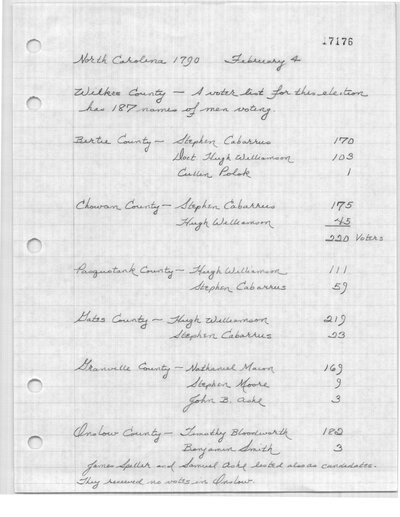 17176
North Carolina 1790 February 4
Wilkes County — A voter list for this election
has 187 names of men voting.
Bertie County — Stephen Cabarrus 170
Doct Hugh Williamson 103
Cullen Polok 1
Chowan County — Stephen Cabarrus 175
Hugh Williamson 45
220 Voters
Pasquotank County — Hugh Williamson 111
Stephen Cabarrus 59
Gates County — Hugh Williamson 219
Stephen Cabarrus 23
Granville County — Nathaniel Macon 169
Stephen Moore 9
John B. Ashe 3
Onslow County — Timothy Bloodworth 182
Benjamin Smith 3
James Spiller and Samuel Ashe listed also as candidates.
They received no votes in Onslow.